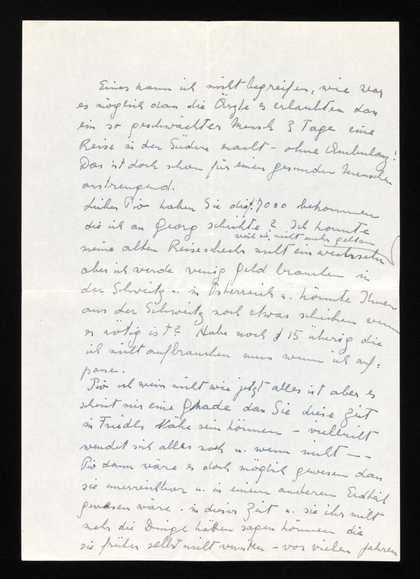 Eines kann ich nicht begreifen, wie war
es möglich dass die Ärzte es erlaubten das
ein so geschwächter Mensch 3 Tage eine
Reise in den Süden macht - ohne Ambulanz!
Das ist doch schon für einen gesunden Menschen
anstrengend.
haben Sie die 7000 bekommen
die ich an Georg schickte? Ich konnte
weil sie nicht mehr gelten
meine alten Reisechecks nicht einwechseln
aber ich werde wenig Geld brauchen in
der Schweitz u. in Österreich u. könnte Ihnen
aus der Schweitz noch etwas schicken wenn
es nötig ist? Habe noch $ 15 übrig die
ich nicht aufbrauchen muss wenn ich auf-
passe.
ich weiss nicht wie jetzt alles ist aber es
scheint mir eine Gnade das Sie diese Zeit
in Friedls Nähe sein können - vielleicht
wendet sich alles noch u. wenn nicht --
dann wäre es doch möglich gewesen das
sie unerreichbar u. in einem anderen Erdteil
gewesen wäre. in dieser Zeit u. sie ihr nicht
mehr die Dinge hätten sagen können die
sie früher selbst nicht wussten - vor vielen Jahren